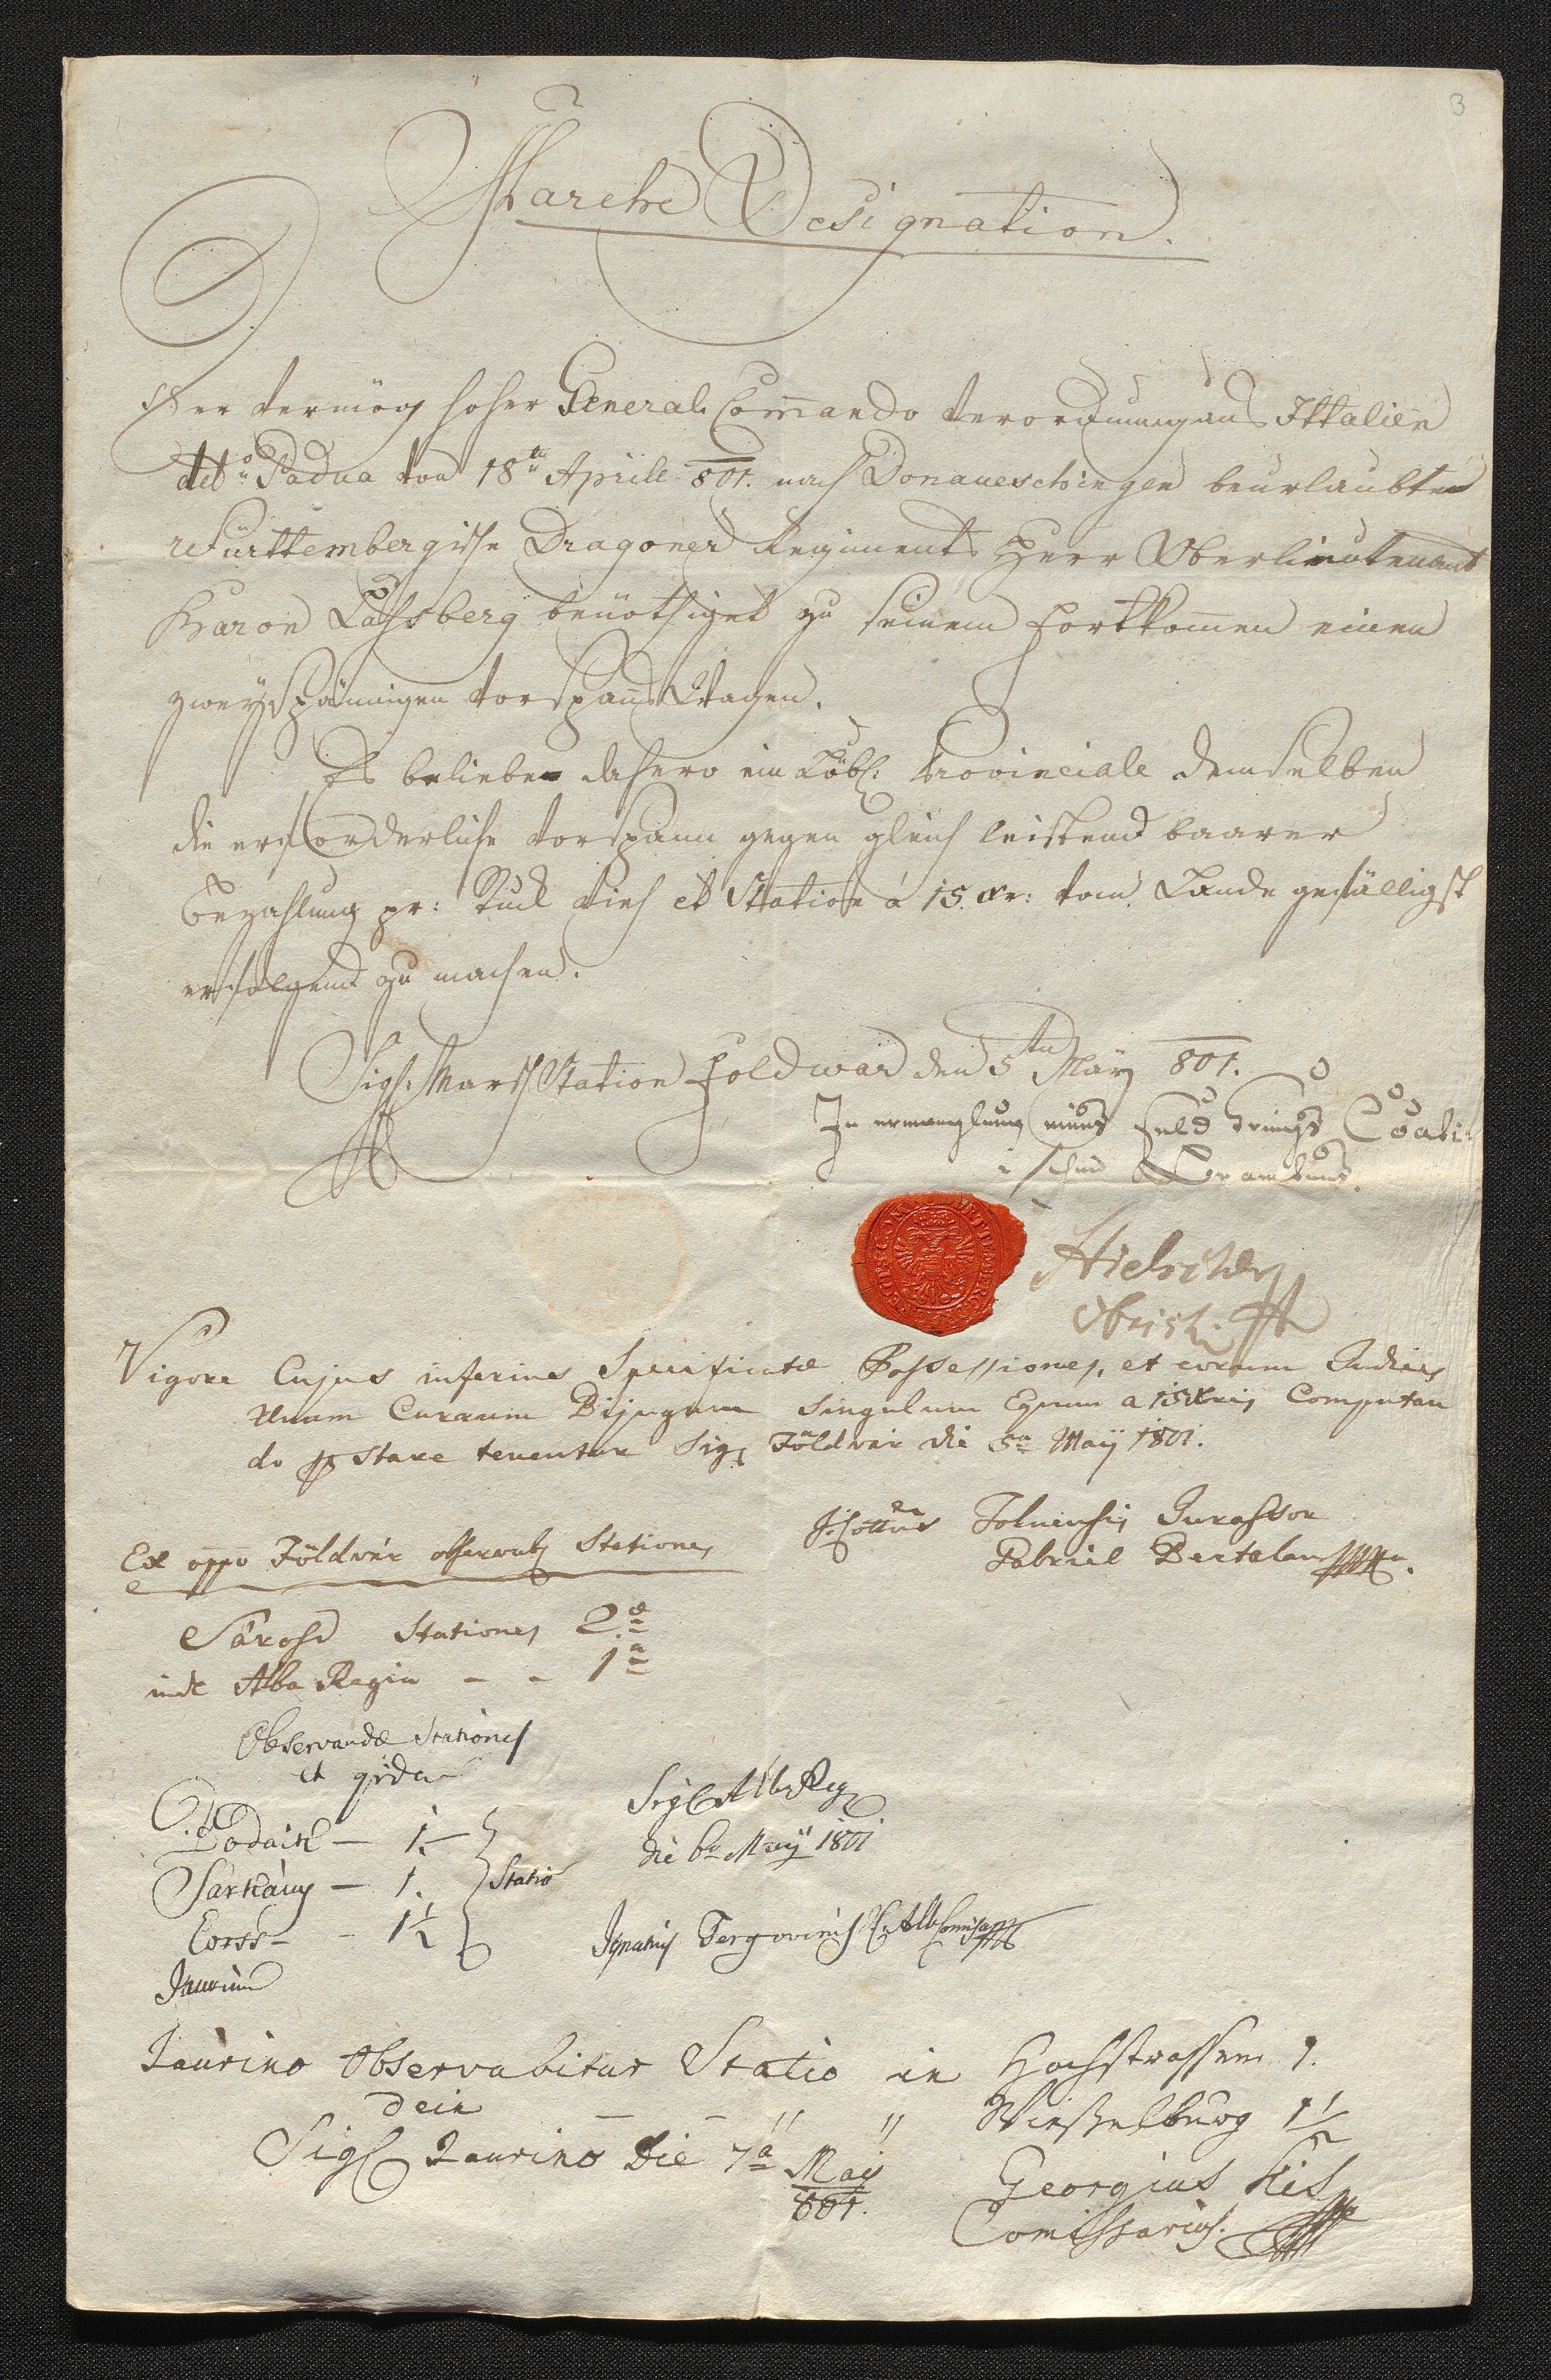 3
Marche Designation.
Der vermög hoher General Com̄ando Verordnung aus Ittalien
ddto Padua vom 18ten Aprill 801. nach Donaueschingen beurlaubte
Württembergische Dragoner Regiments Herr Oberlieutenant
Baron Laßberg benöthiget zu seinem Fortkom̄en einen
zweyspännigen Vorspan̄s Wagen.
Es beliebe dahero ein Löbl: Provinciale demselben
die erforderliche Vorspann gegen gleich leistend baarer
Bezahlung pr: Stuck Vieh et Station à 15 xr: vom Lande gefälligst
erfolgend zu machen.
Sigl: Marsch Station Foldwar den 5ten May 801.
In ermanglung eines Feld Kriegs
Obrist
Vigore Cujus inferius Specificatæ Possessiones, et eorum Judices
Unum Currum Bijugum Singulum Equum a 15 Xris Computan
do pstare tenentur Sig. Földvár die 5a Maÿ 1801.
I. Cottus Tolnensis Jurassor
Gabriel Bertalan
Ex oppo Földvár observabz Stationes
Sárosd Stationes 2æ
inde Alba Regia - - 1a
Observandæ Stationes
et qvidem
Bodaik - 1.
Sárkány - 1. Statio
Eörss - - 1½
Jaurinum
Sigl Alb. Reg.
die 6a Maÿ 1801
Ignatius C. Alb Comiss
Jaurino Observabitur Statio in Hochstrassen 1.
dein - - " " Wieselburg 1½
Sigl Jaurino Die 7a Maÿ
801.
Georgius Kis
Comissarius.